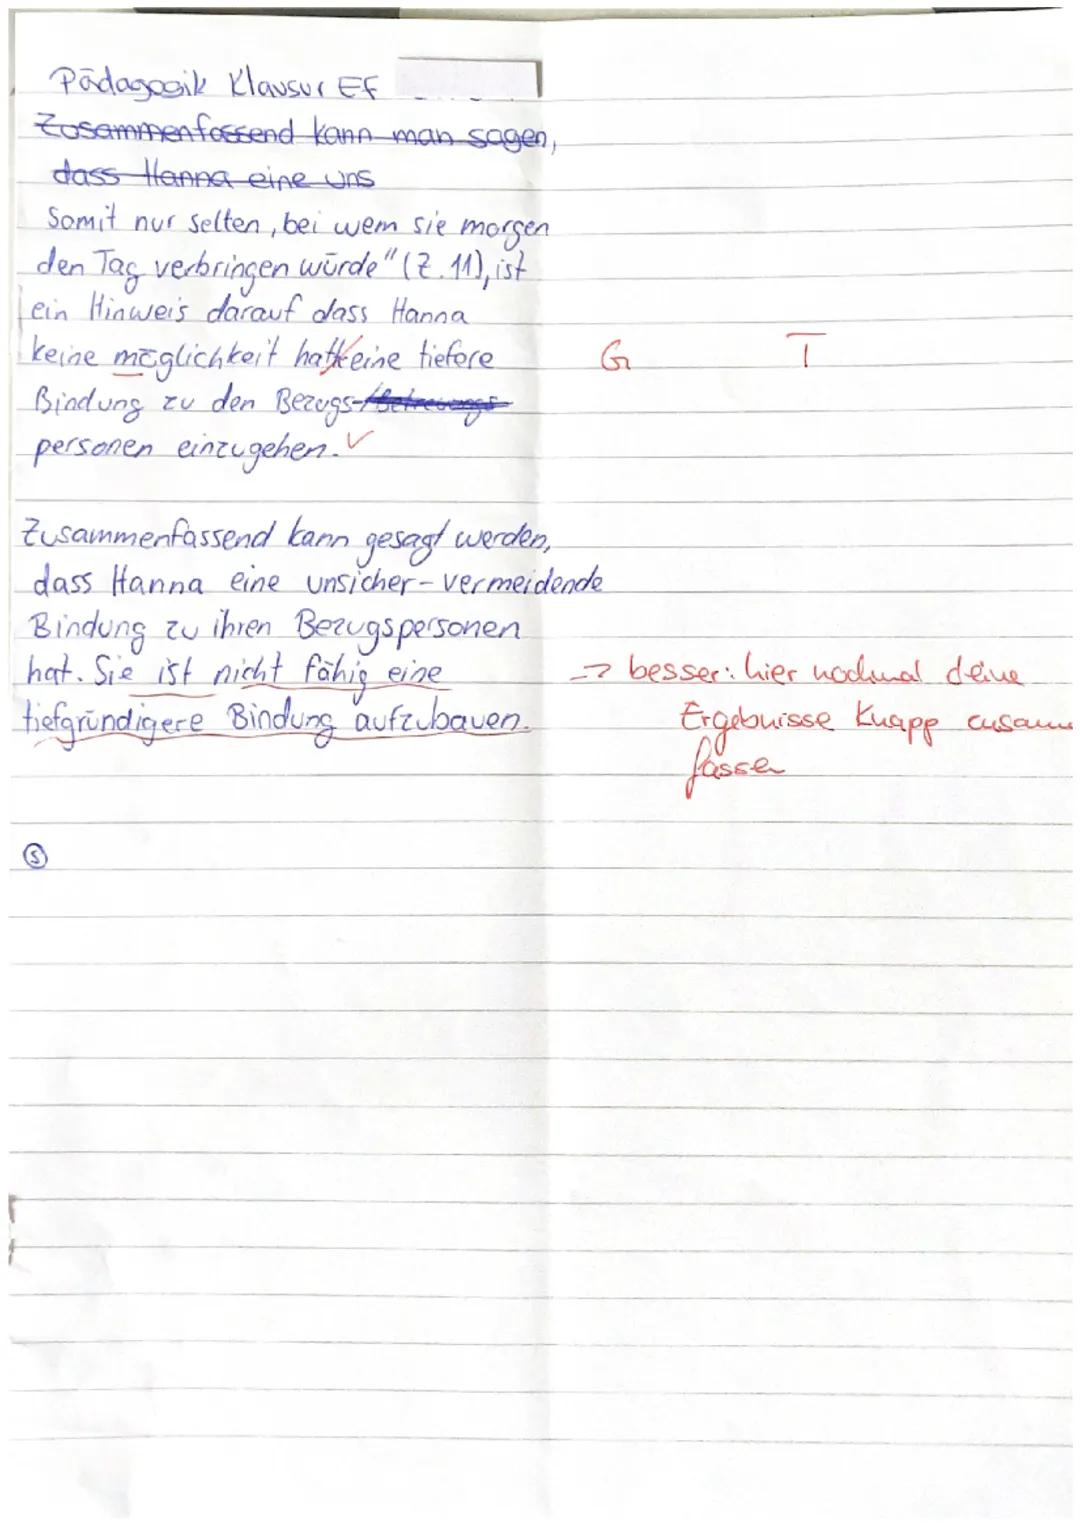 Pädagogik Klausur EF
Zusammenfassend kann man sagen,
dass Hanna eine uns
Somit nur selten, bei wem sie morgen
den Tag verbringen würde" (Z. 11), ist
ein Hinweis darauf dass Hanna
keine möglichkeit hat eine tiefere G T
Bindung zu den Bezugs-/Betreuungs
personen einzugehen. ✓
Zusammenfassend kann gesagt werden,
dass Hanna eine unsicher-vermeidende
Bindung zu ihren Bezugspersonen
hat. Sie ist nicht fähig eine
tiefgründigere Bindung aufzubauen.
-> besser: hier nochmal deine
Ergebnisse knapp zusamm
fassen
5